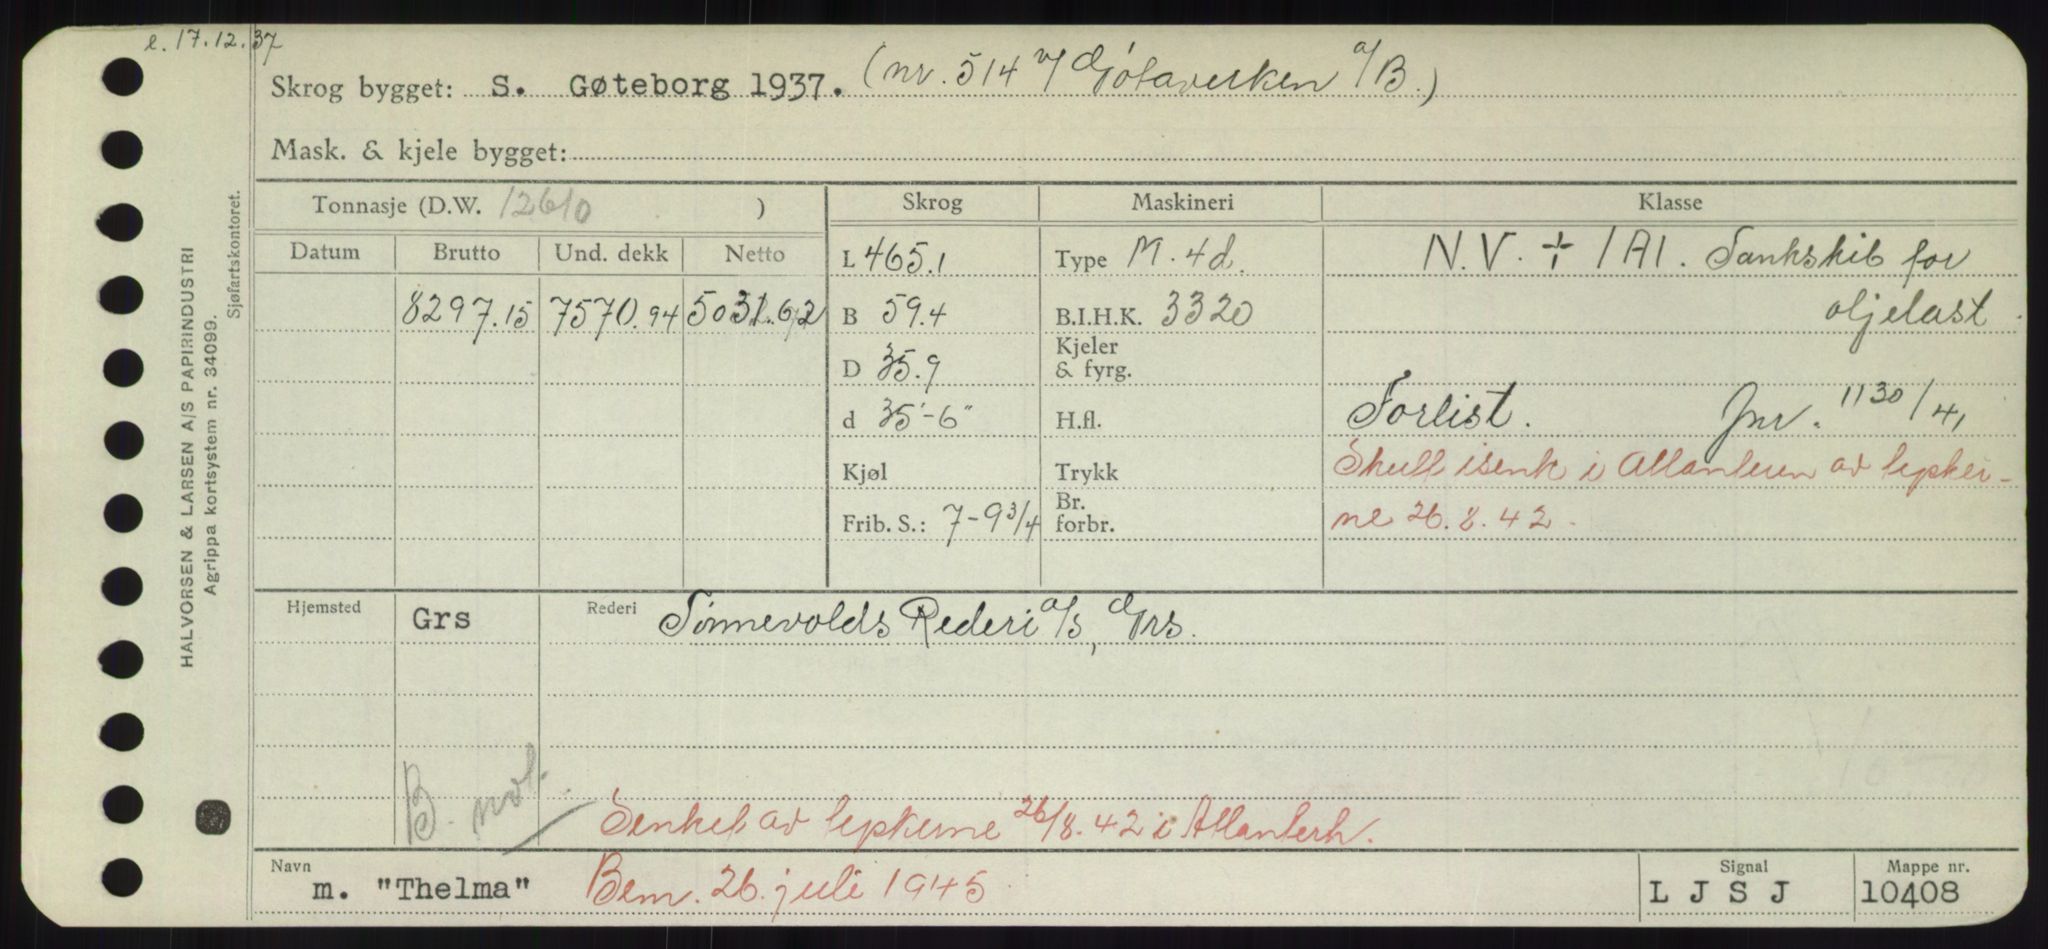 e. 17.12.37
Skrog bygget: S. Gøteborg 1937. (nr. 514 v/ Götaverken a/B.)
Mask. & kjele bygget:
Tonnasje (D.W. 12610 )
Skrog
Maskineri
Klasse
Datum
Brutto
Und. dekk
Netto
8297.15
7570.94
L 465.1
B 59.4
D 35.9
d 35'-6"
Kjøl
Frib. S.: 7-9 3/4
Type M. 4d.
B.I.H.K. 3320
Kjeler
& fyrg.
H.fl.
Trykk
Br.
forbr.
N.V. + 1A1. Tankskib for
oljelast.
Forlist. Jnr. 1130/41
Skutt isenk i Atlanteren av tysker-
ne 26.8.42.
Hjemsted
Grs
Rederi
Tønnevolds Rederi a/s, Grs.
B. not.
Senket av tyskerne 26/8.42 i Atlanterh.
Navn
m. "Thelma"
Bem. 26. juli 1945.
Signal
L J S J
Mappe nr.
10408
HALVORSEN & LARSEN A/S PAPIRINDUSTRI
Agrippa kortsystem nr. 34099.
Sjøfartskontoret.